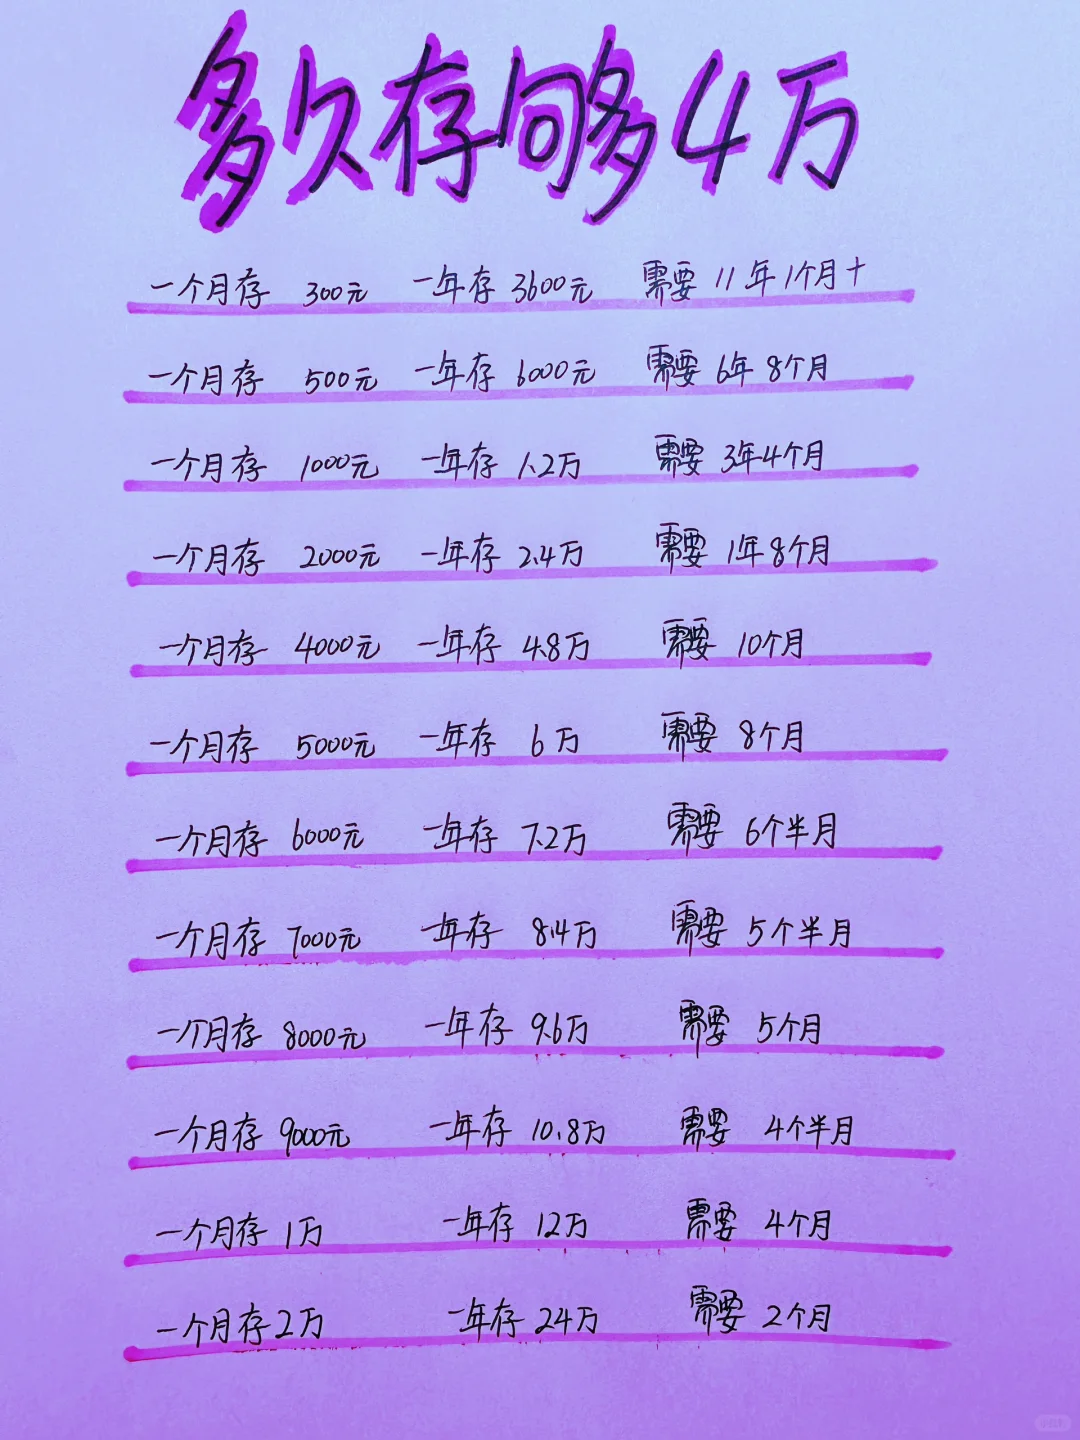 多久存够4万
一个月存 300元 一年存 3600元 需要 11年1个月+
一个月存 500元 一年存 6000元 需要 6年8个月
一个月存 1000元 一年存 1.2万 需要 3年4个月
一个月存 2000元 一年存 2.4万 需要 1年8个月
一个月存 4000元 一年存 4.8万 需要 10个月
一个月存 5000元 一年存 6万 需要 8个月
一个月存 6000元 一年存 7.2万 需要 6个半月
一个月存 7000元 一年存 8.4万 需要 5个半月
一个月存 8000元 一年存 9.6万 需要 5个月
一个月存 9000元 一年存 10.8万 需要 4个半月
一个月存 1万 一年存 12万 需要 4个月
一个月存 2万 一年存 24万 需要 2个月